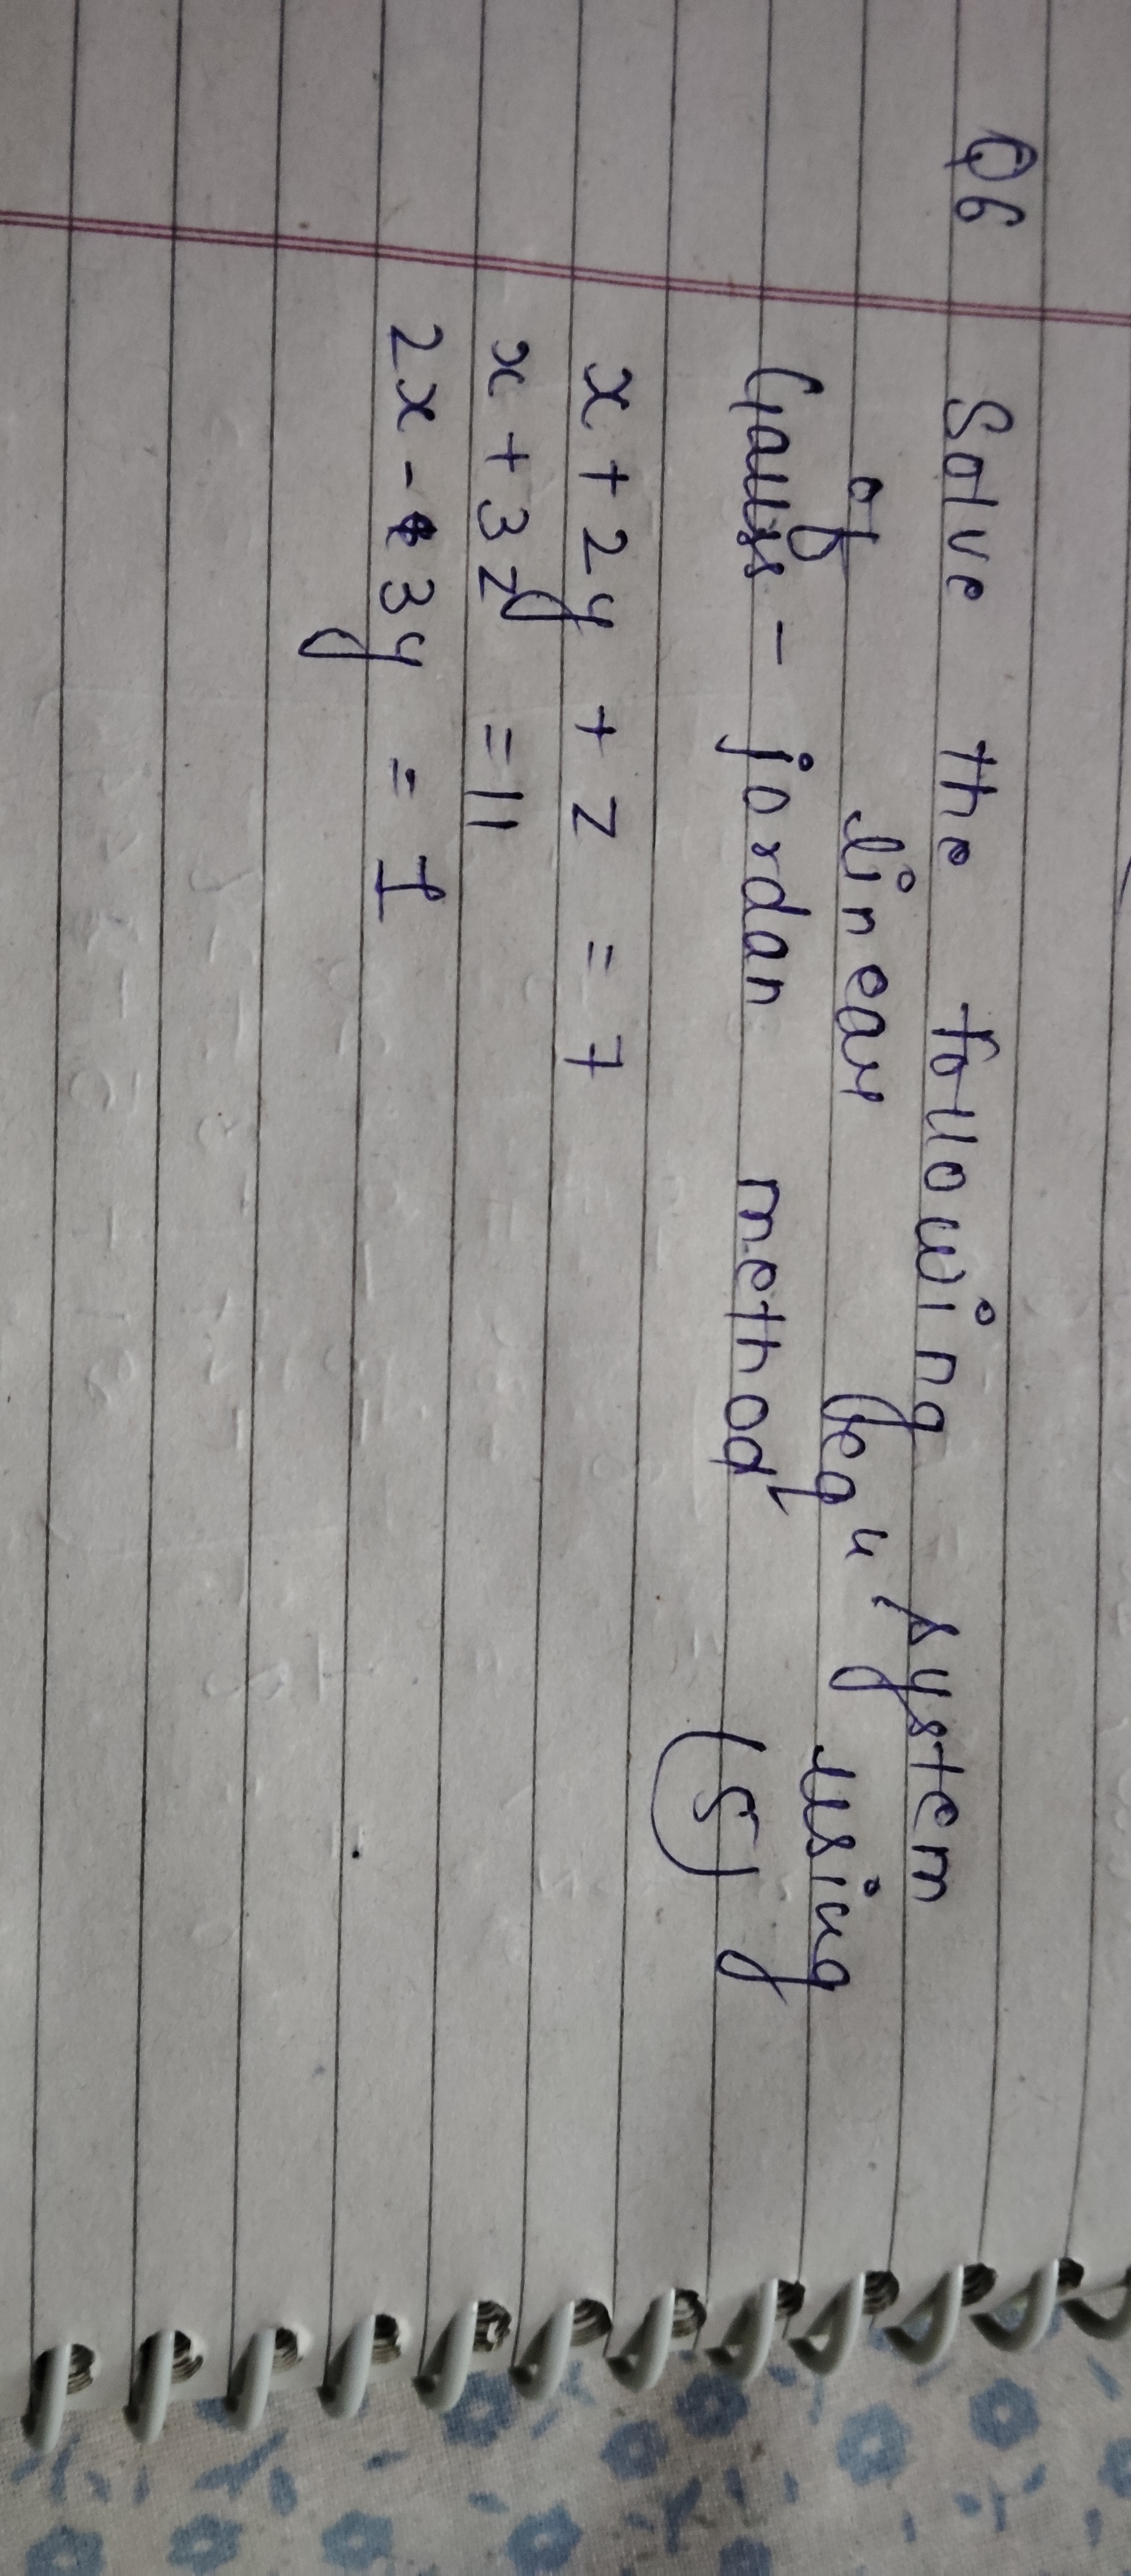 Q6 Solve the following system
of linear eqn using
Gauss - jordan method (5)
x + 2y + z = 7
x + 3z = 11
2x - 3y = 1